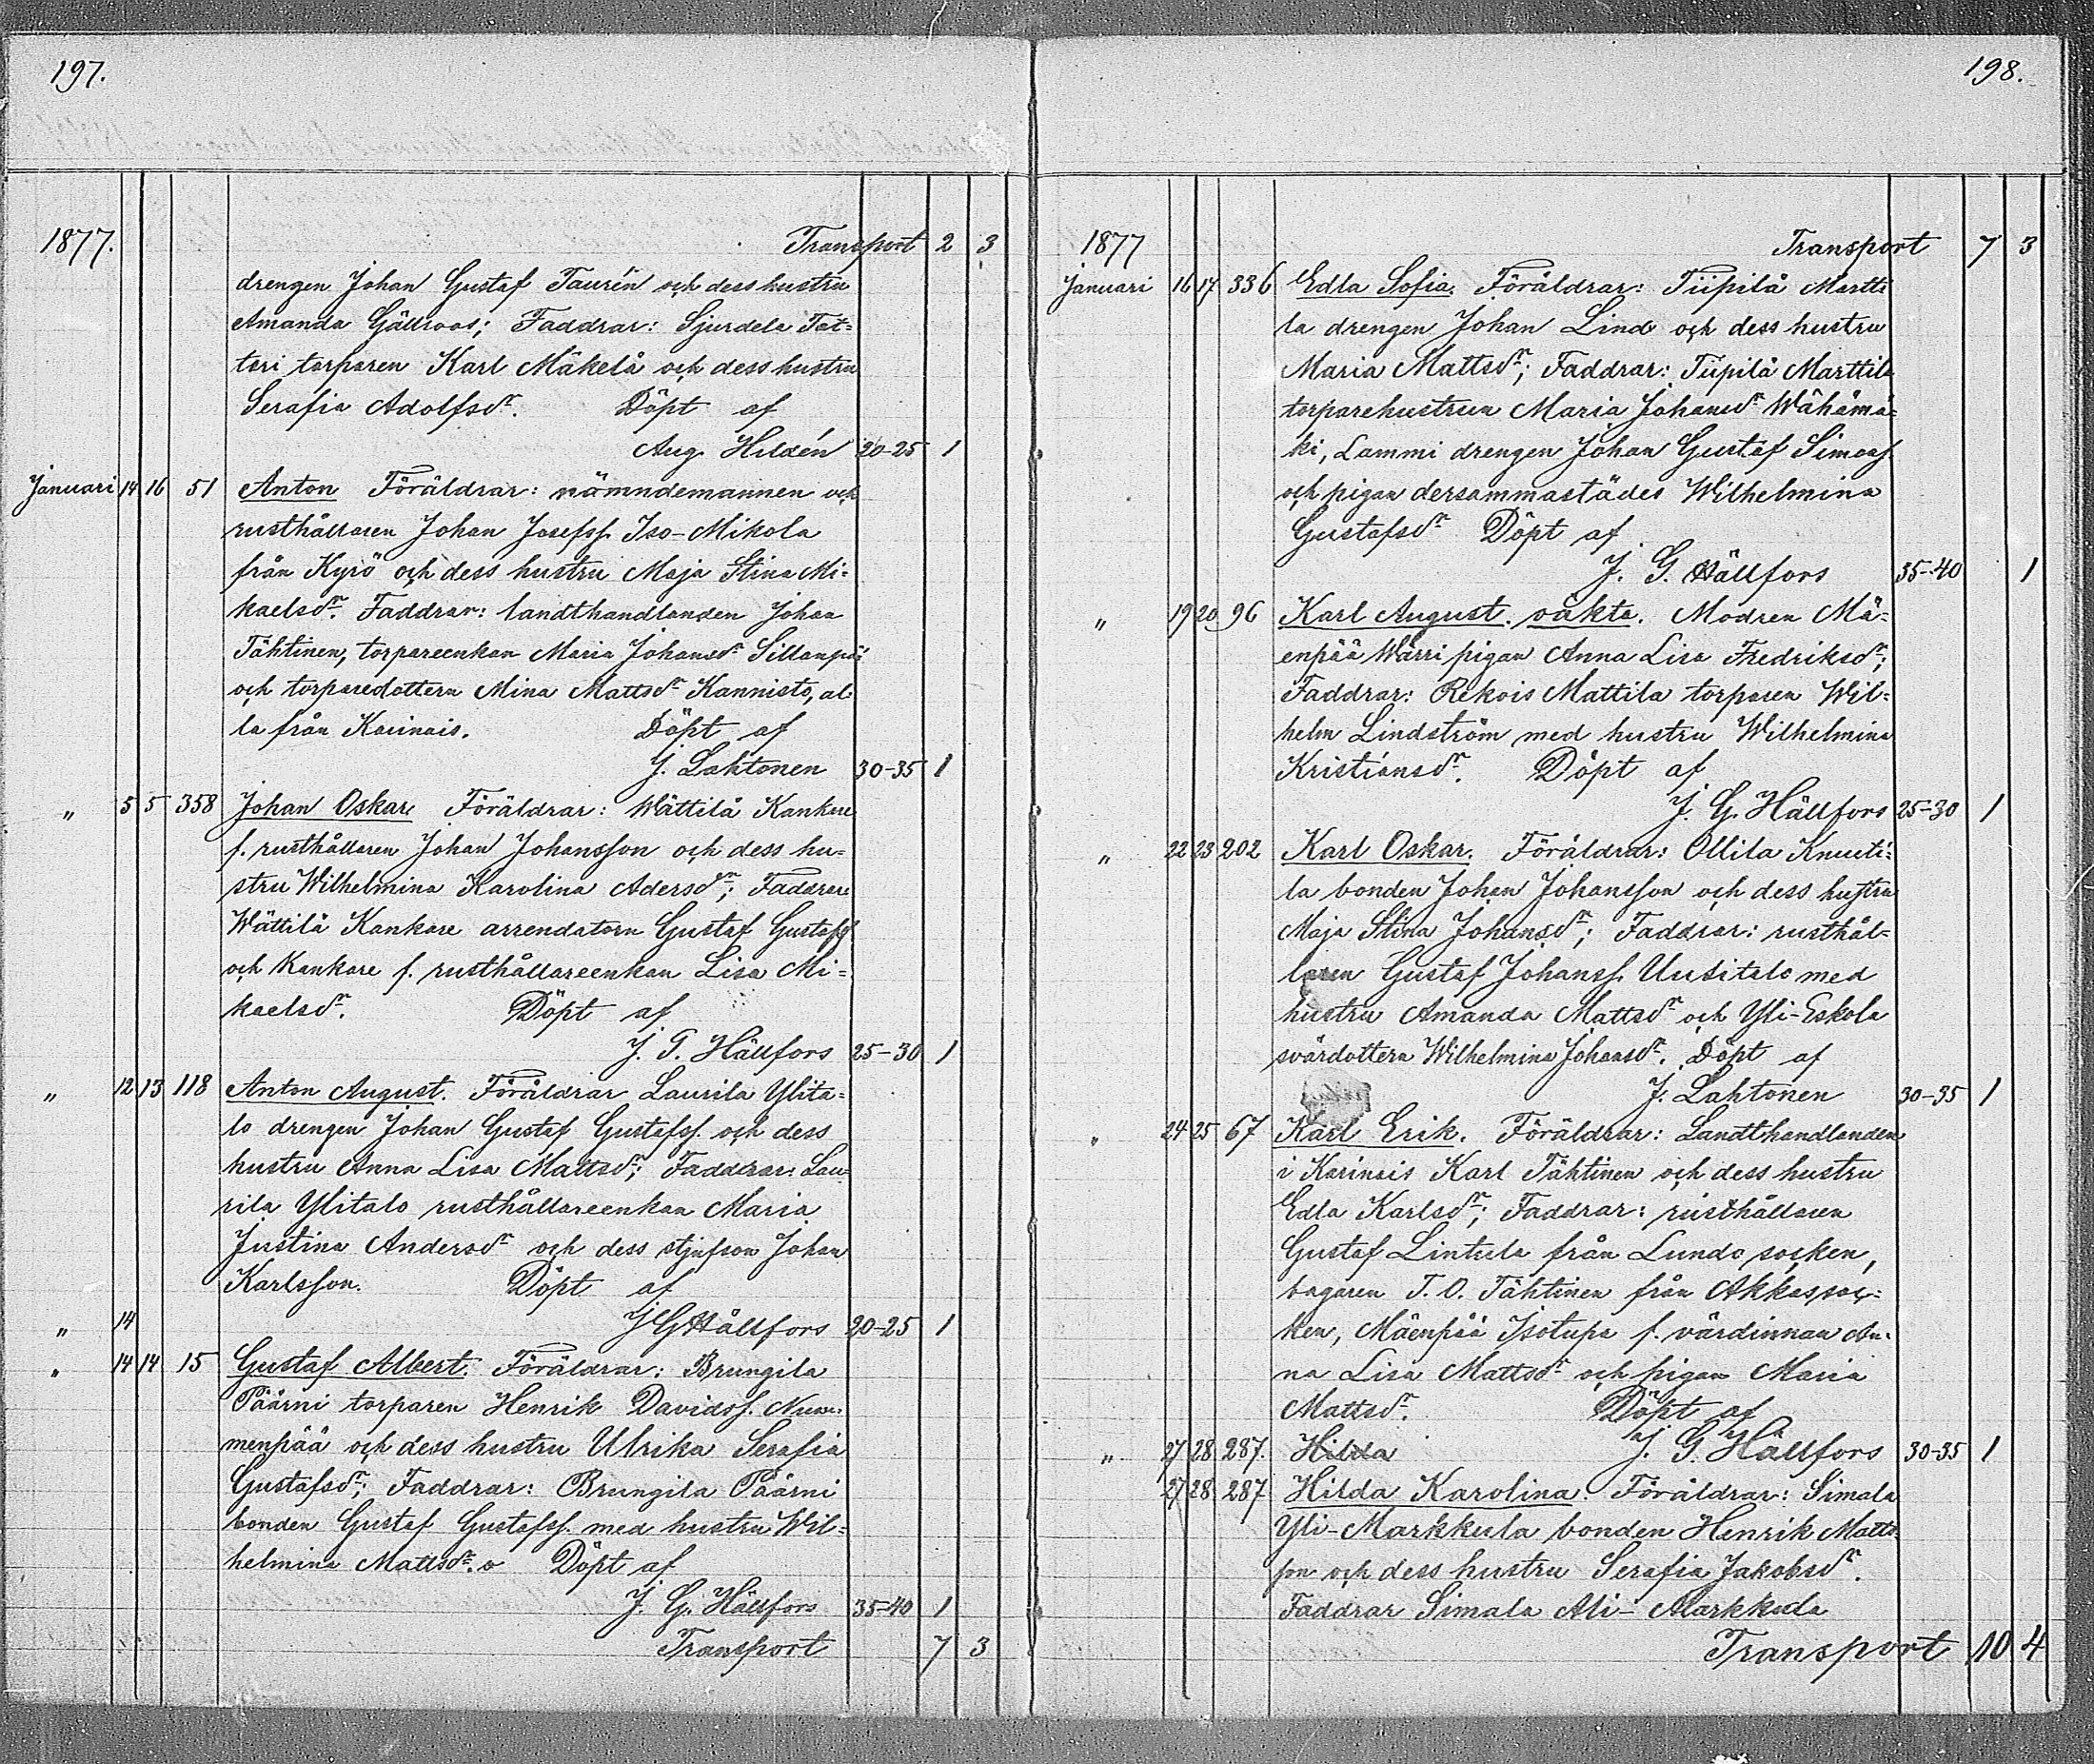 197.
1877.
Transport 2 3
drengen Johan Gustaf Taurén och dess hustru
Amanda Gällroos; Faddrar: Sjurdela Tat-
tari torparen Karl Mäkelä och dess hustru
Serafia Adolfsdr. Döpt af
Aug. Hildén 20-25 1
Januari 14 16 51 Anton Föräldrar: nämndemannen och
rusthållaren Johan Josefss. Iso-Mikola
från Kyrö och dess hustru Maja Stina Mi-
kaelsdr. Faddrar: landthandlanden Johan
Tähtinen, torpareenkan Maria Johansdr Sillanpää
och torparedottern Mina Mattsdr Kannisto, al-
la från Karinais. Döpt af
J. Lahtonen 30-35 1
" 5 5 358 Johan Oskar Föräldrar: Wättilä Kankare
f. rusthållaren Johan Johansson och dess hu-
stru Wilhelmina Karolina Adersdr; Faddrar
Wättilä Kankare arrendatorn Gustaf Gustafss
och Kankare f. rusthållareenkan Lisa Mi-
kaelsdr. Döpt af
J. G. Hällfors 25-30 1
" 12 13 118 Anton August. Föräldrar Laurila Ylita-
lo drengen Johan Gustaf Gustafss. och dess
hustru Anna Lisa Mattsdr; Faddrar: Lau-
rila Ylitalo rusthållareenkan Maria
Justina Andersdr och dess stjufson Johan
Karlsson. Döpt af
" 14 J G Hällfors 20-25 1
" 14 14 15 Gustaf Albert. Föräldrar: Brungila
Päärni torparen Henrik Davidss. Num-
menpää och dess hustru Ulrika Serafia
Gustafsdr; Faddrar: Brungila Päärni
bonden Gustaf Gustafss. med hustru Wil-
helmina Mattsdr. Döpt af
J. G. Hällfors 35-40 1
Transport 7 3
198.
1877 Transport 7 3
Januari 16 17 336 Edla Sofia. Föräldrar: Tiipilä Martti
la drengen Johan Lind och dess hustru
Maria Mattsdr; Faddrar: Tiipilä Marttila
torparehustrun Maria Johansdr Wähämä-
ki, Lammi drengen Johan Gustaf Simonss
och pigan dersammastädes Wilhelmina
Gustafsdr Döpt af
J. G. Hällfors 35-40 1
" 19 20 96 Karl August. oäkta. Modren Mä-
enpää Wärri pigan Anna Lisa Fredriksdr;
Faddrar: Rekois Mattila torparen Wil-
helm Lindström med hustru Wilhelmina
Kristiansdr. Döpt af
J. G. Hällfors 25-30 1
" 22 23 202 Karl Oskar. Föräldrar: Ollila Knuuti-
la bonden Johan Johansson och dess hustru
Maja Stina Johansdr; Faddrar: rusthål-
laren Gustaf Johanss. Uusitalo med
hustru Amanda Mattsdr och Yli-Eskola
svärdottern Wilhelmina Johansdr. Döpt af
J. Lahtonen 30-35 1
" 24 25 67 Karl Erik. Föräldrar: Landthandlanden
i Karinais Karl Tähtinen och dess hustru
Edla Karlsdr; Faddrar: rusthållaren
Gustaf Lintula från Lundo socken,
bagaren T. O. Tähtinen från Akkas soc-
ken, Mäenpää Isotupa f. värdinnan An-
na Lisa Mattsdr och pigan Maria
Mattsdr. Döpt af
" 27 28 287. Hilda J. G. Hällfors 30-35 1
27 28 287 Hilda Karolina. Föräldrar: Simala
Yli-Markkula bonden Henrik Matts-
son och dess hustru Serafia Jakobsdr.
Faddrar Simala Ali-Markkula
Transport 10 4